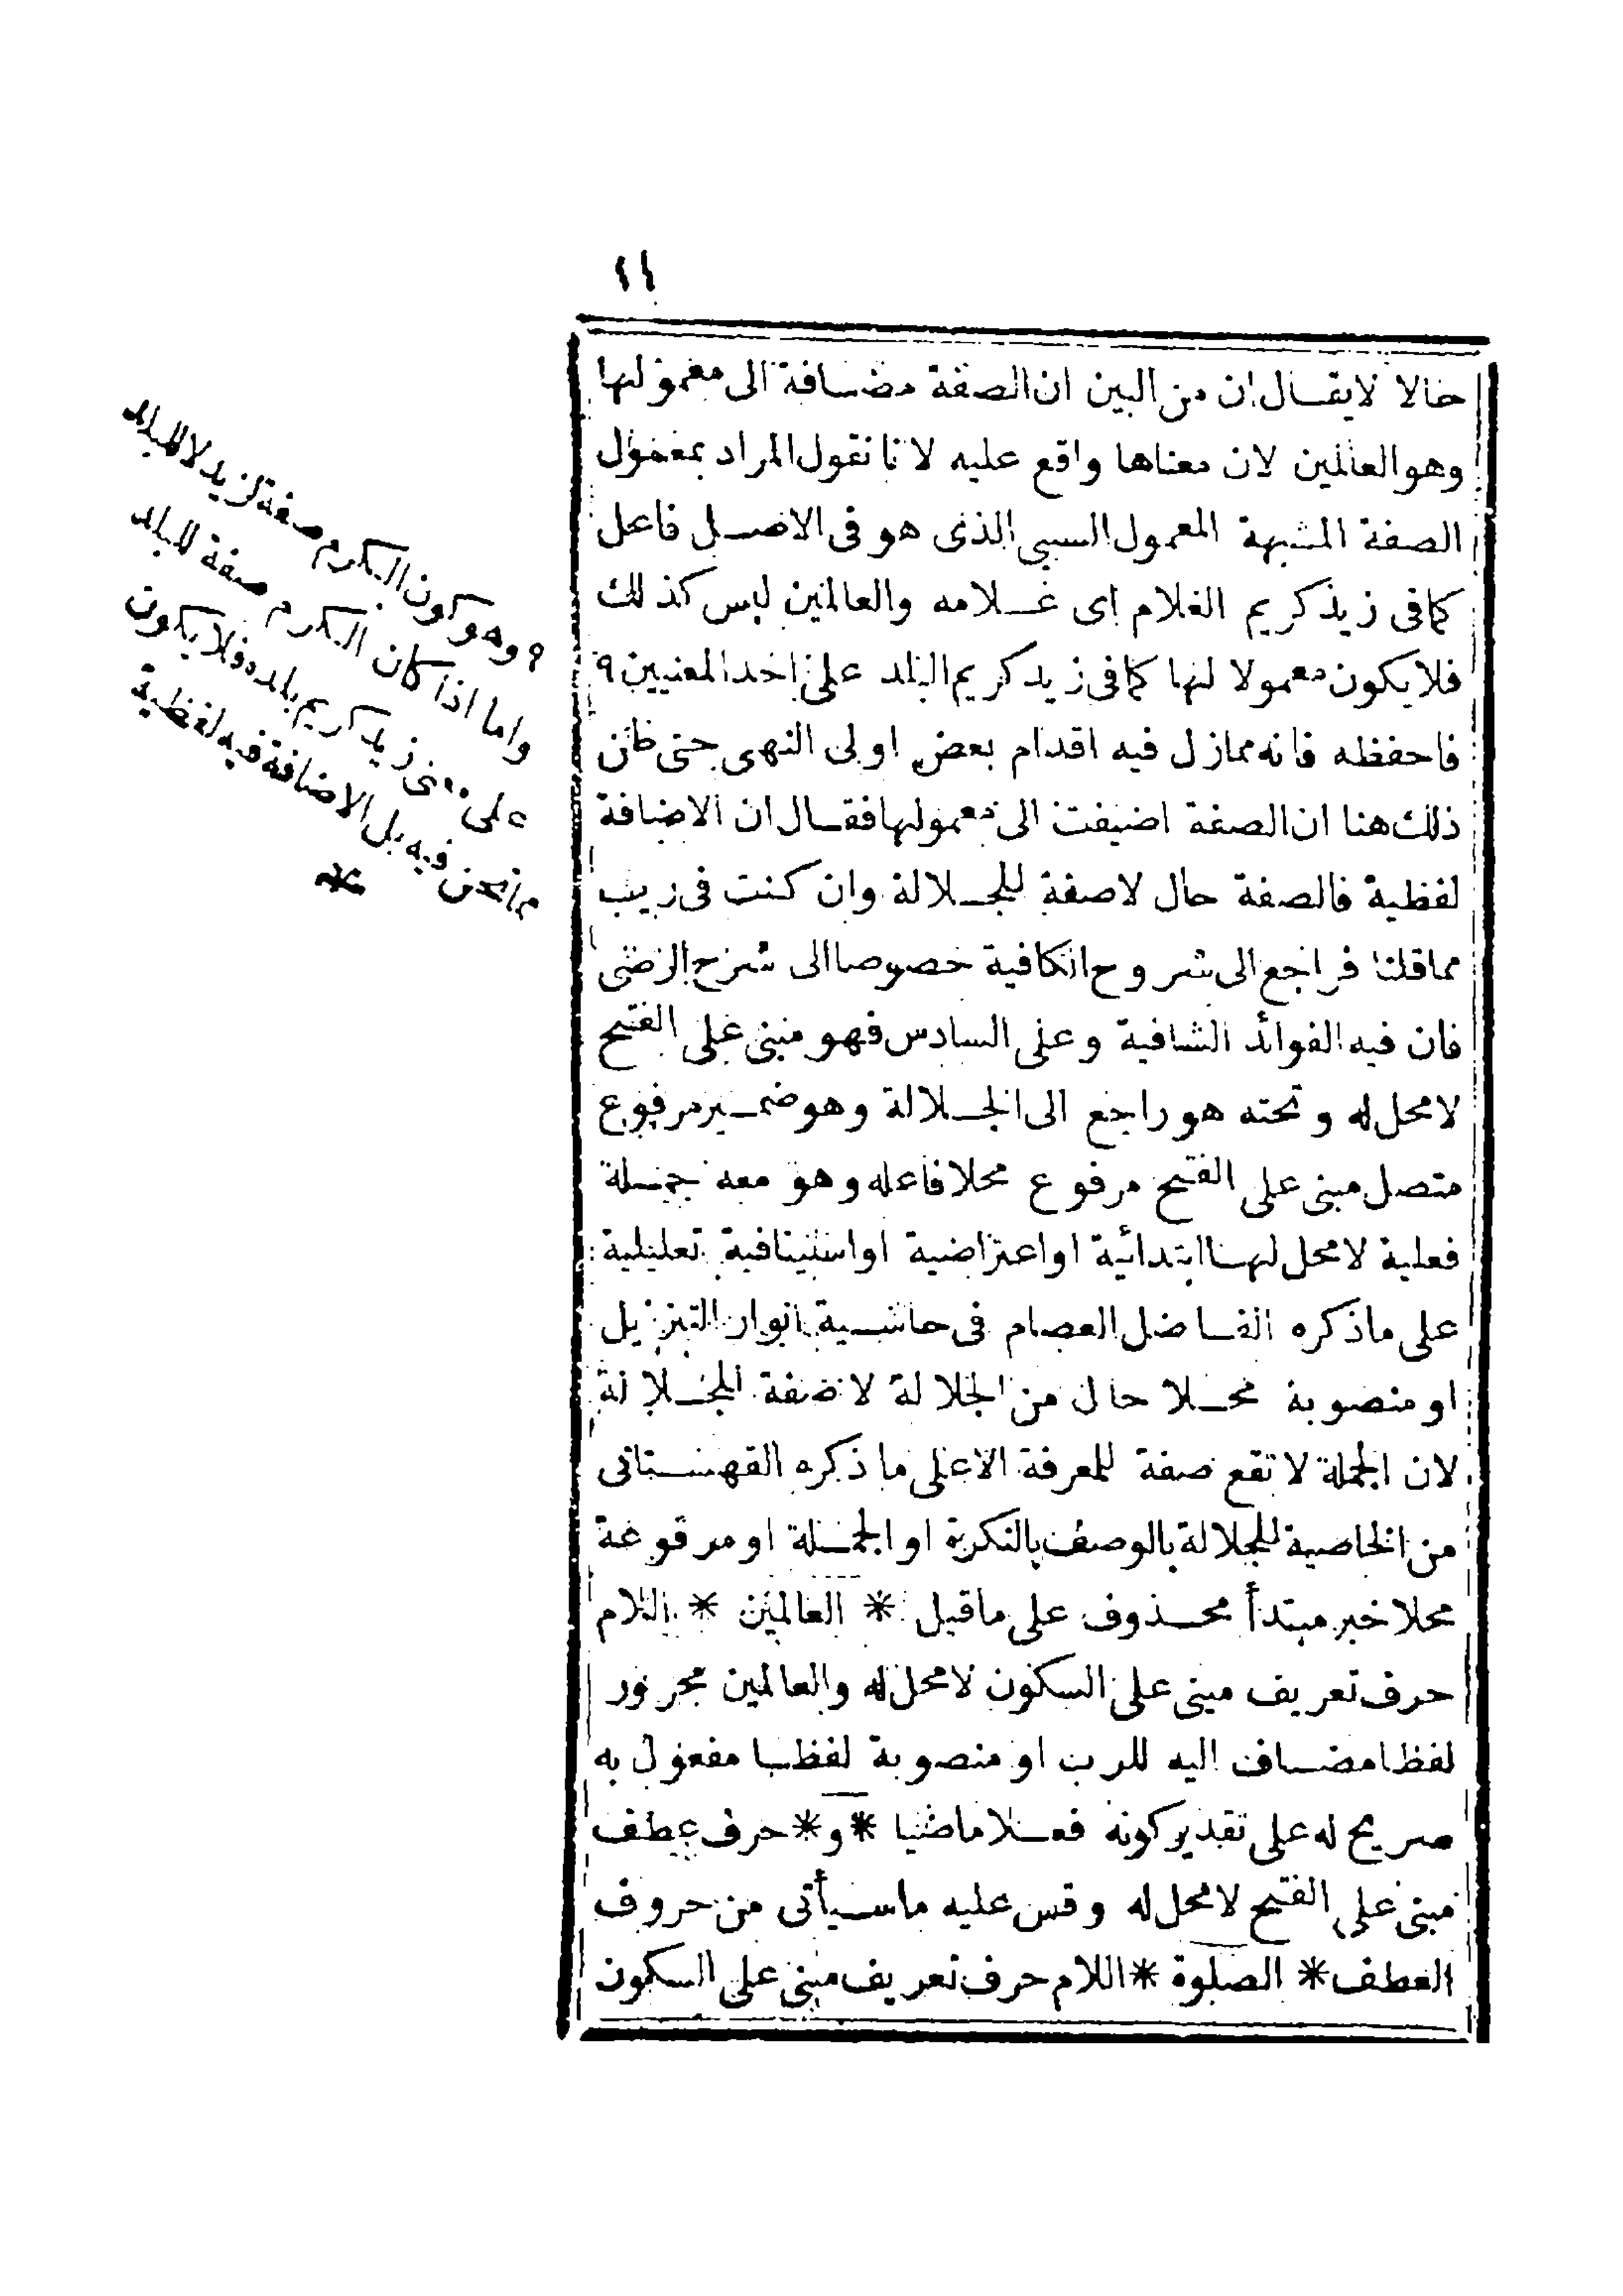 ١١
حالا لا يقال ان من البين ان الصفة مضافة الى معمولها
وهو العالمين لان معناها واقع عليه لانا نقول المراد بمعمول
الصفة المشبهة المعمول السببي الذى هو فى الاصل فاعل
كما فى زيد كريم الغلام اى غلامه والعالمين ليس كذلك
فلا يكون معمولا لها كما فى زيد كريم البلد على احد المعنيين ٩
فاحفظه فانه مما زل فيه اقدام بعض اولى النهى حتى ظن
ذلك هنا ان الصفة اضيفت الى معمولها فقال ان الاضافة
لفظية فالصفة حال لا صفة للجلالة وان كنت فى ريب
مما قلنا فراجع الى شروح الكافية خصوصا الى شرح الرضى
فان فيه الفوائد الشافية وعلى السادس فهو مبنى على الفتح
لا محل له وتحته هو راجع الى الجلالة وهو ضمير مرفوع
متصل مبنى على الفتح مرفوع محلا فاعله وهو معه جملة
فعلية لا محل لها ابتدائية او اعتراضية او استينافية تعليلية
على ما ذكره الفاضل العصام فى حاشية انوار التنزيل
او منصوبة محلا حال من الجلالة لا صفة للجلالة
لان الجملة لا تقع صفة للمعرفة الا على ما ذكره القهستانى
من الخاصية للجلالة بالوصف بالنكرة او الجملة او مرفوعة
محلا خبر مبتدأ محذوف على ما قيل * العالمين * اللام
حرف تعريف مبنى على السكون لا محل له والعالمين مجرور
لفظا مضاف اليه للرب او منصوبة لفظا مفعول به
صريح له على تقدير كونه فعلا ماضيا * و * حرف عطف
مبنى على الفتح لا محل له وقس عليه ما سيأتى من حروف
العطف * الصلوة * اللام حرف تعريف مبنى على السكون
٩ وهو كون الكرم صفة لزيد لا للبلد
واما اذا كان الكرم صفة للبلد
على معنى زيد كريم بلده فلا يكون
مما نحن فيه بل الاضافة فيه لفظية